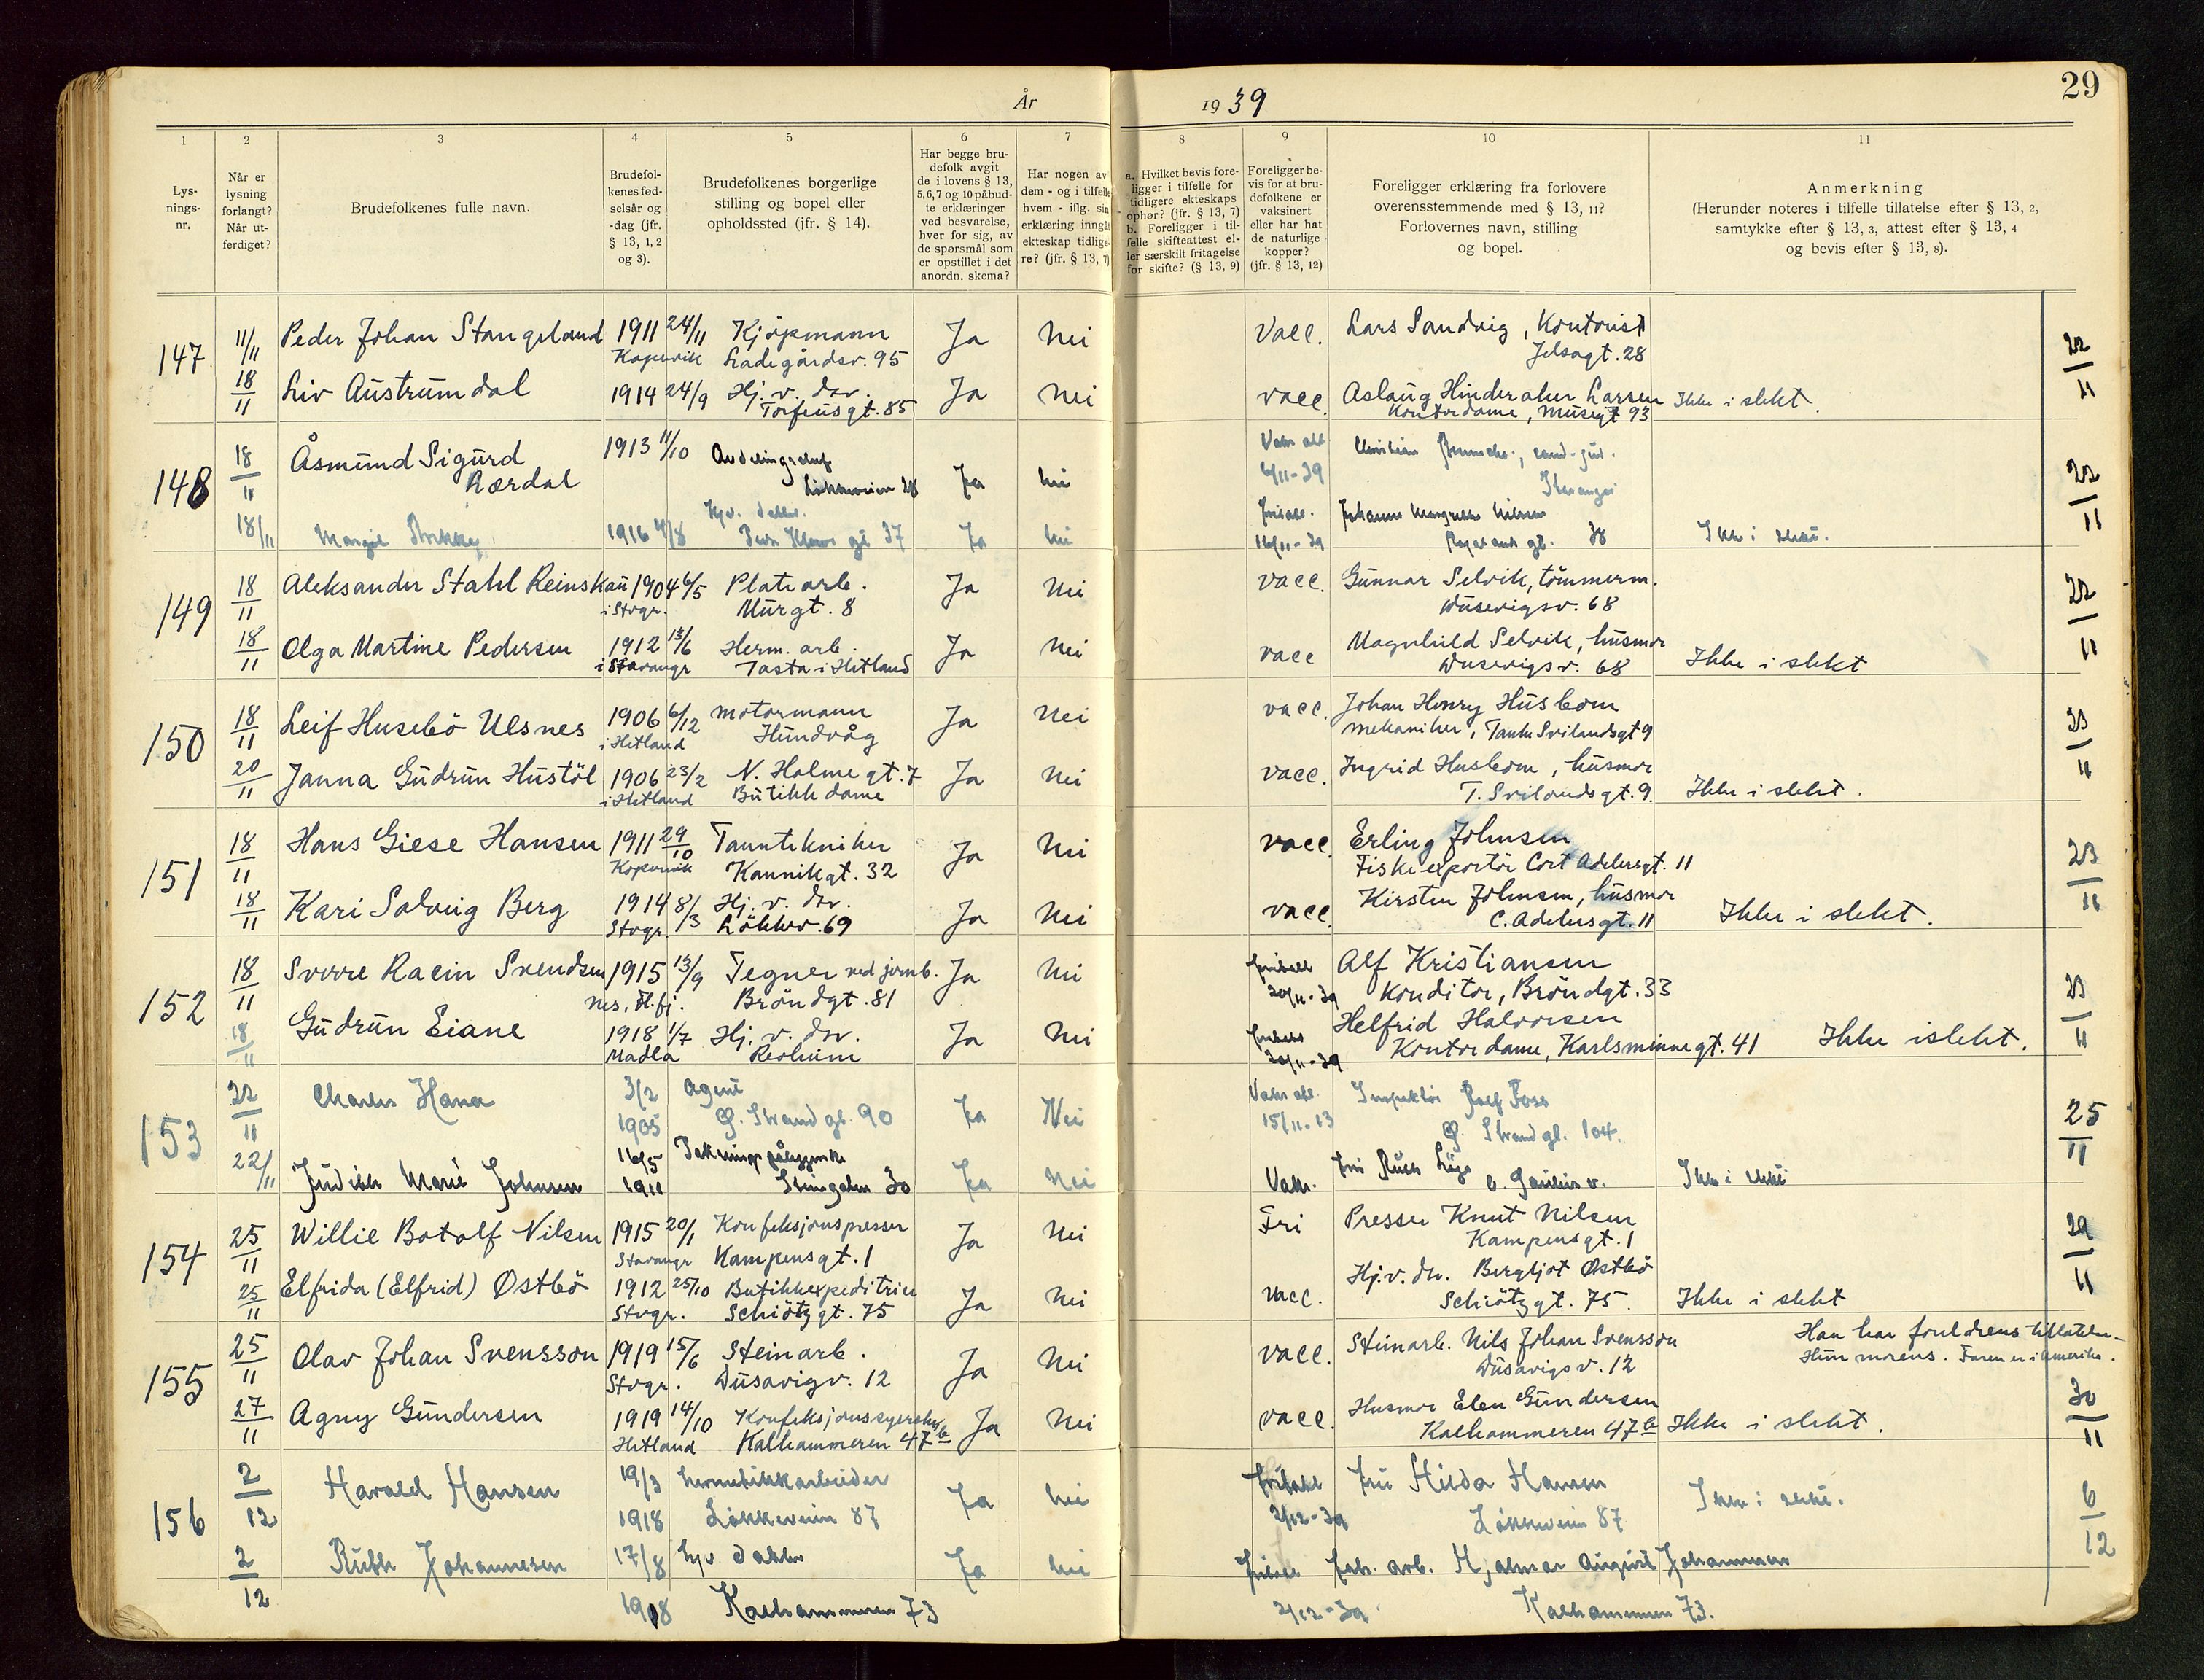 År 1939
29
1 2 3 4 5 6 7 8 9 10 11
Lysningsnr.
Når er lysning forlangt? Når utferdiget?
Brudefolkenes fulle navn.
Brudefolkenes fødselsår og -dag (jfr. § 13, 1, 2 og 3).
Brudefolkenes borgerlige stilling og bopel eller opholdssted (jfr. § 14).
Har begge brudefolk avgit de i lovens § 13, 5,6,7 og 10 påbudte erklæringer ved besvarelse, hver for sig, av de spørsmål som er opstillet i det anordn. skema?
Har nogen av dem - og i tilfelle hvem - iflg. sin erklæring inngått ekteskap tidligere? (jfr. § 13, 7)
a. Hvilket bevis foreligger i tilfelle for tidligere ekteskaps ophør? (jfr. § 13, 7) b. Foreligger i tilfelle skifteattest eller særskilt fritagelse for skifte? (§ 13, 9)
Foreligger bevis for at brudefolkene er vaksinert eller har hat de naturlige kopper? (jfr. § 13, 12)
Foreligger erklæring fra forlovere overensstemmende med § 13, 11? Forlovernes navn, stilling og bopel.
Anmerkning (Herunder noteres i tilfelle tillatelse efter § 13, 2, samtykke efter § 13, 3, attest efter § 13, 4 og bevis efter § 13, 8).
147 11/11 Peder Johan Stangeland 1911 24/11 Kjöpmann Ja Nei Vacc. Lars Sandvig, Kontorist 22/11
Kopervik Ladegårdsv. 95 Jelsagt. 28
18/11 Liv Austrumdal 1914 24/9 Hj. v. dv. Ja Nei vacc. Aslaug Hinderaker Larsen Ikke i slekt.
Torfeusgt. 85 Kontordame, Musegt 93
148 18/11 Åsmund Sigurd 1913 11/10 Avdelingschef Vaks att 22/11
Lærdal Løkkeveien 28 Ja Nei 6/11-39 Stavanger
18/11 Margit 1916 4/8 Hj v. Ja Nei Johanne Margrethe Nilsen
gt 37 16/11-39 gt. 38 Ikke i slekt.
149 18/11 Aleksander Stahl Reinskau 1904 6/5 Platearb. Ja Nei vacc. Gunnar Selvik, tömmerm. 22/11
i Stvgr. Murgt. 8 Dusevigsv. 68
18/11 Olga Martine Pedersen 1912 13/6 Herm. arb. Ja Nei vacc Magnhild Selvik, husmor
i Stavangr Tasta i Hetland Dusevigsv. 68 Ikke i slekt
150 18/11 Leif Husebö Ulsnes 1906 6/12 motormann Ja Nei vacc. Johan Henry Husbom 23/11
i Hetland Hundvåg mekaniker, Tanke Svilandsgt 9
20/11 Janna Gudrun Hustöl 1906 23/2 N. Holmegt. 7 Ja Nei vacc. Ingrid Husbom, husmor
i Hetland Butikkdame T. Svilandsgt. 9. Ikke i slekt.
151 18/11 Hans Giese Hansen 1911 29/10 Tanntekniker Ja Nei vacc. Erling Johnsen 23/11
Kopervik Kannikgt. 32 Fiskeexportör Cort Adelersgt. 11
18/11 Kari Solveig Berg 1914 8/3 Hj. v. dv. Ja Nei vacc. Kirsten Johnsen, husmor
Stvgr. Lökkev. 69 C. Adelersgt. 11 Ikke i slekt.
152 18/11 Sverre Racin Svendsen 1915 13/9 Tegner ved jernb. Ja Nei Alf Kristiansen 23/11
Nes, Fl.fj. Bröndgt. 81 20/11-39 Konditor, Bröndgt. 33
18/11 Gudrun Eiane 1918 1/7 Hj. v. dv. Ja Nei Helfrid Halvorsen
Madla Revheim 20/11-39 Kontordame, Karlsminnegt. 41 Ikke i slekt.
153 22/11 Charles Hana 3/2 Agent Ja Nei Vaks att. Inspektör Foss 25/11
1905 Ö. Strandgt. 90 15/11-13 Ö. Strandgt. 104.
22/11 Judith Marie Johnsen 16/5 Ja Nei Vaks. Fru Ruth Ikke i slekt
1911 Steingaten 30
154 25/11 Willie Botolf Nilsen 1915 20/1 Konfeksjonspresser Ja Nei Fri Presser Knut Nilsen 29/11
Stavangr Kampensgt. 1 Kampensgt. 1
25/11 Elfrida (Elfrid) Østbö 1912 25/10 Butikkexpeditrice Ja Nei vacc. Hj. v. dv. Bergljot Østbö
Stvgr. Schiötzgt. 75 Schiötzgt. 75. Ikke i slekt
155 25/11 Olav Johan Svensson 1919 15/6 Steinarb. Ja Nei vacc. Steinarb. Nils Johan Svensson Han har foreldrens tillatelse.
Stvgr. Dusavigv. 12 Dusavigsv. 12 Hun morens. Faren er i Amerika.
27/11 Agny Gundersen 1919 14/10 Konfeksjonssyerske Ja Nei vacc. Husmor Elen Gundersen 30/11
Hetland Kalhammeren 47 b Kalhammeren 47 b Ikke i slekt.
156 2/12 Harald Hansen 19/3 hermetikkarbeider Ja Nei Fritatt Fru Hilda Hansen Ikke i slekt. 6/12
1918 Løkkeveien 87 2/12-39 Løkkeveien 87
2/12 Ruth Johannesen 17/8 Hj v Ja Nei arb. Hjalmar August Johannesen
1918 Kalhammeren 73 2/12-39 Kalhammeren 73.